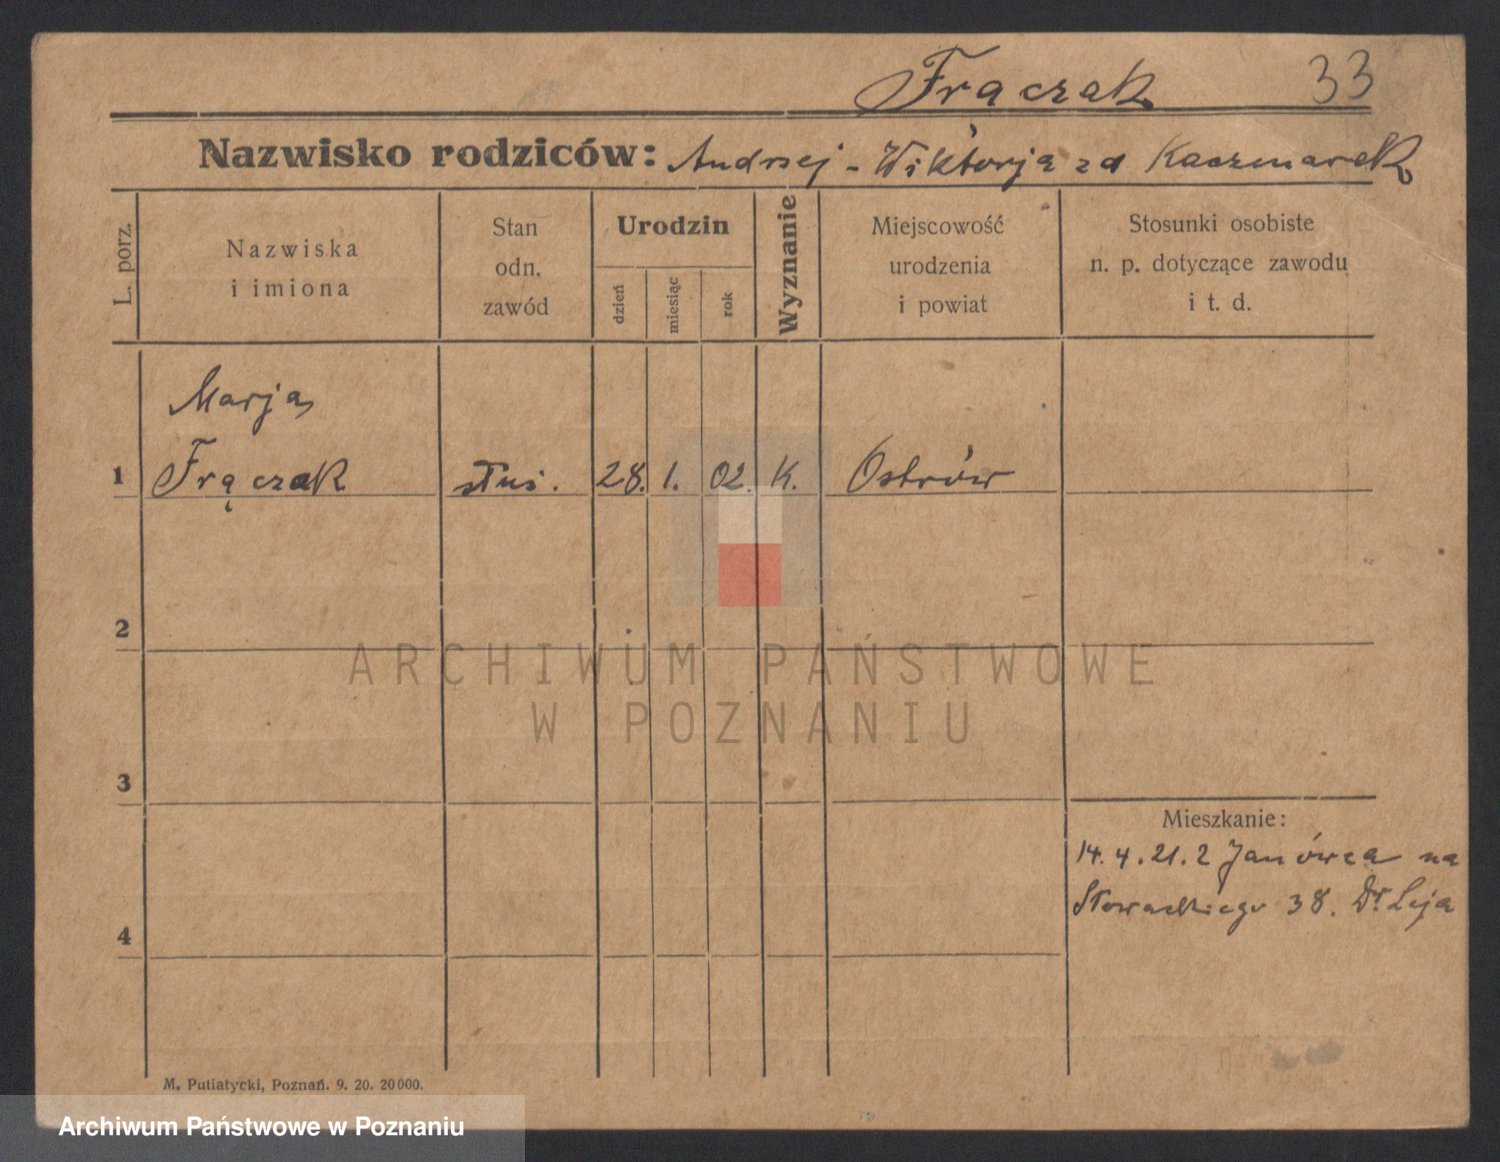 Frączak 33
Nazwisko rodziców: Andrzej - Wiktorja zd Kaczmarek
L. porz.
Nazwiska
i imiona
Stan
odn.
zawód
Urodzin
dzień
miesiąc
rok
Wyznanie
Miejscowość
urodzenia
i powiat
Stosunki osobiste
n. p. dotyczące zawodu
i t. d.
Marja
1 Frączak służ. 28. 1. 02. K. Ostrów
2
ARCHIWUM PAŃSTWOWE
W POZNANIU
3
Mieszkanie:
14.4.21. z Janówca na
Słowackiego 38. Dr. Leja
4
M. Putiatycki, Poznań. 9. 20. 20000.
Archiwum Państwowe w Poznaniu